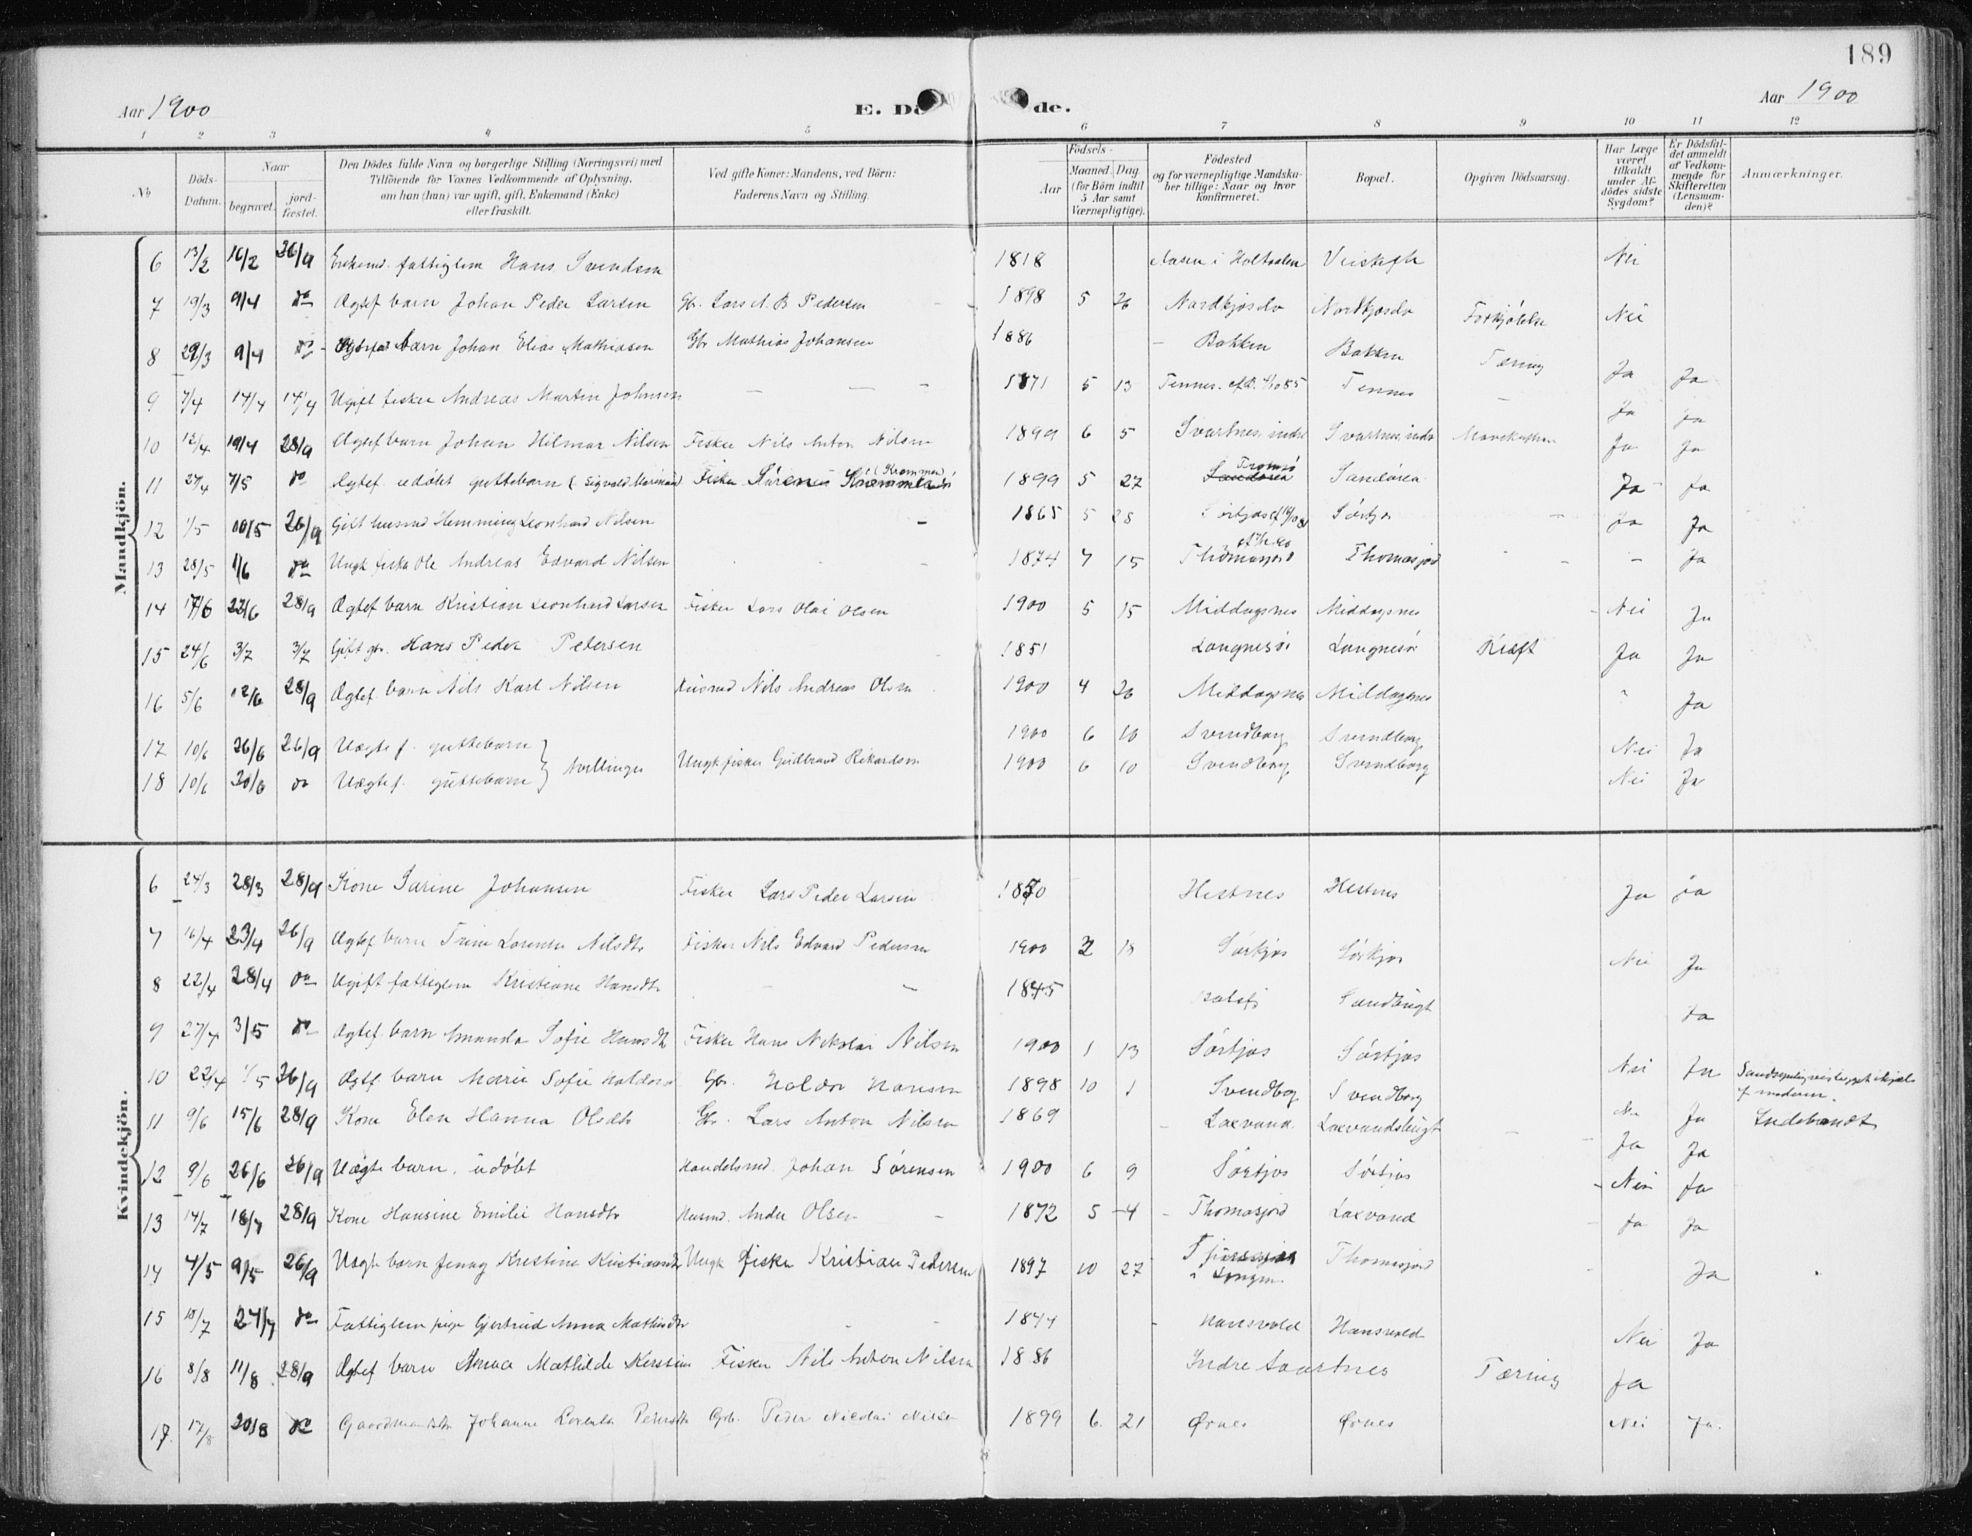 189
Aar 1900 E. Dö de. Aar 1900
1 2 3 4 5 6 7 8 9 10 11 12
No
Döds-Datum.
Naar
begravet.
jord-fæstet.
Den Dödes fulde Navn og borgerlige Stilling (Næringsvei) med
Tilföiende for Voxnes Vedkommende af Oplysning,
om hun (han) var ugift, gift, Enkemand (Enke)
eller fraskilt.
Ved gifte Koner: Mandens, ved Börn:
Faderens Navn og Stilling.
Födsels-
Aar
Maaned Dag
(for Börn indtil
5 Aar samt
Værnepligtige).
Födested
og for værnepligtige Mandska-
ber tillige: Naar og hvor
konfirmeret.
Bopæl.
Opgiven Dödsaarsag.
Har Læge
været
tilkaldt
under Af-
dödes sidste
Sygdom?
Er Dödsfal-
det anmeldt
af Vedkom-
mende for
Skifteretten
(Lensman-
den)?
Anmærkninger.
Mandkjön.
6 13/2 16/2 26/9 Enkemd. fattiglem Hans Svendsen 1818 Aasen i Holtaalen Nei
7 19/3 9/4 do Ægtef barn Johan Peder Larsen Gb. Lars N. B Pedersen 1898 5 26 Nordkjosbo Nordkjosbo Forkjölelse Nei
8 29/3 9/4 do Ægtef barn Johan Elias Mathiasen Gbr Mathias Johansen 1886 Bakken Bakken Tæring Ja Ja
9 7/4 14/4 14/4 Ugift fisker Andreas Martin Johnsen 1871 5 13 Tennes. Tennes Ja Ja
10 12/4 19/4 28/9 Ægtef barn Johan Hilmar Nilsen Fisker Nils Anton Nilsen 1899 6 5 Svartnes, indre Svartnes, indre Ja Ja
11 27/4 7/5 do Ægtef. udöbt guttebarn (Sigvald Fisker Sörenes 1899 5 27 Tromsö Sandören Ja Ja
12 1/5 10/5 26/9 Gift husmd Hemming Leonhard Nilsen 1865 5 28 Ja Ja
13 28/5 1/6 do Ungk fisker Ole Andreas Edvard Nilsen 1874 7 15 Thomasjord Thomasjord Ja
14 17/6 22/6 28/9 Ægtef barn Kristian Leonhard Larsen Fisker Lars Olai Olsen 1900 5 15 Middagsnes Middagsnes Nei Ja
15 24/6 3/7 3/7 Gift gbr. Hans Peder Petersen 1851 Langnesör Langnesör Kræft Ja Ja
16 5/6 12/6 28/9 Ægtef barn Nils Karl Nilsen Husmd Nils Andreas Olsen 1900 4 26 Middagsnes Middagsnes " Ja
17 10/6 26/6 26/9 Uægtef. guttebarn } 1900 6 10 Svendborg Svendborg Nei Ja
tvillinger Ungk fisker Gudbrand Rikardsen
18 10/6 20/6 do Uægtef. guttebarn } 1900 6 10 Svendborg Svendborg Nei Ja
Kvindekjön.
6 24/3 28/3 28/9 Kone Sarine Johansen Fisker Lars Peder Larsen 1870 Hestnes Hestnes Ja Ja
7 16/4 23/4 26/9 Ægtef barn Trine Lorentse Nilsdtr Fisker Nils Edvard Pedersen 1900 2 18 Sörkjos Sörkjos Nei Ja
8 22/4 28/4 do Ugift fattiglem Kristiane Hansdtr 1845 Balsfj Sandbugt Ja
9 27/4 3/5 do Ægtef barn Amanda Sofie Hansdtr Fisker Hans Nikolai Nilsen 1900 1 13 Sörkjos Sörkjos Nei Ja
10 22/4 1/5 26/9 Ægtf. barn Marie Sofie Haldors Gbr. Haldor Hansen 1898 10 1 Svendborg Svendborg Nei Ja Sandsynligvis ligget ihjæl af moderen.
11 9/6 15/6 28/9 Kone Elen Hanna Olsdtr Gbr. Lars Anton Nilsen 1869 Laxvand Laxvandsbugt Ja Ja
12 9/6 26/6 26/9 Uægte barn. udöbt Handelsmd. Johan Sörensen 1900 6 9 Sörkjos Sörkjos Nei Ja
13 14/7 18/7 28/9 Kone Hansine Emilie Hansdtr Husmd. Ander Olsen 1872 5 4 Thomasjord Laxvand Ja Ja
14 4/5 9/5 26/9 Uægte barn Jenny Kristine Kristiansdtr Ungk fisker Kristian Pedersen 1897 10 27 i Lyngen. Thomasjord Ja
15 10/7 24/7 do Fattiglem pige Gjertrud Anna Mathisdtr 1844 Hansvold Hansvold Nei Ja
16 8/8 11/8 28/9 Ægtef barn Anna Mathilde Kerstine Fisker Nils Anton Nilsen 1886 Indre Svartnes Tæring Ja
17 17/8 20/8 do Gaardmandsdtr Johanne Lorentse Pedersdtr Gbr. Peder Nicolai Nilsen 1899 6. 21 Örnes Örnes Nei Ja.